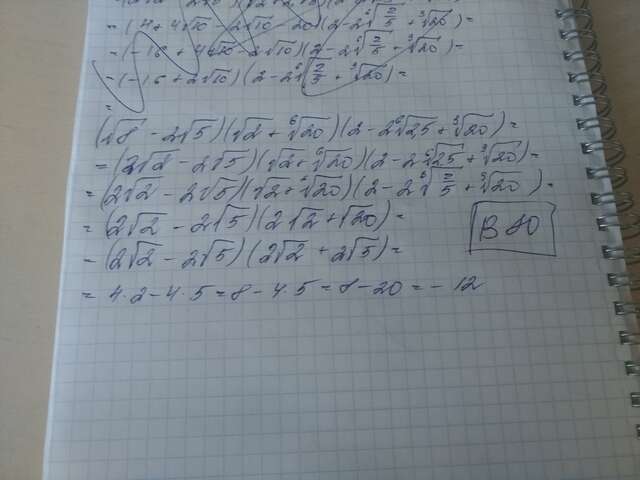 = (4 + 4√10 - 2√10 - 20)(2 - 2⁶√(2/5) + ³√20) =
= (-16 + 4√10 - 2√10)(2 - 2⁶√(2/5) - ³√20) =
= (-16 + 2√10)(2 - 2⁶√(2/5) + ³√20) =
=
(√8 - 2√5)(√2 + ⁶√20)(2 - 2⁶√2,5 + ³√20) =
= (2√2 - 2√5)(√2 + ⁶√20)(2 - 2⁶√2,5 + ³√20) =
= (2√2 - 2√5)(√2 + ⁶√20)(2 - 2⁶√(5/2) + ³√20) =
= (2√2 - 2√5)(2√2 + √20) =
= (2√2 - 2√5)(2√2 + 2√5) =
= 4·2 - 4·5 = 8 - 4·5 = 8 - 20 = -12